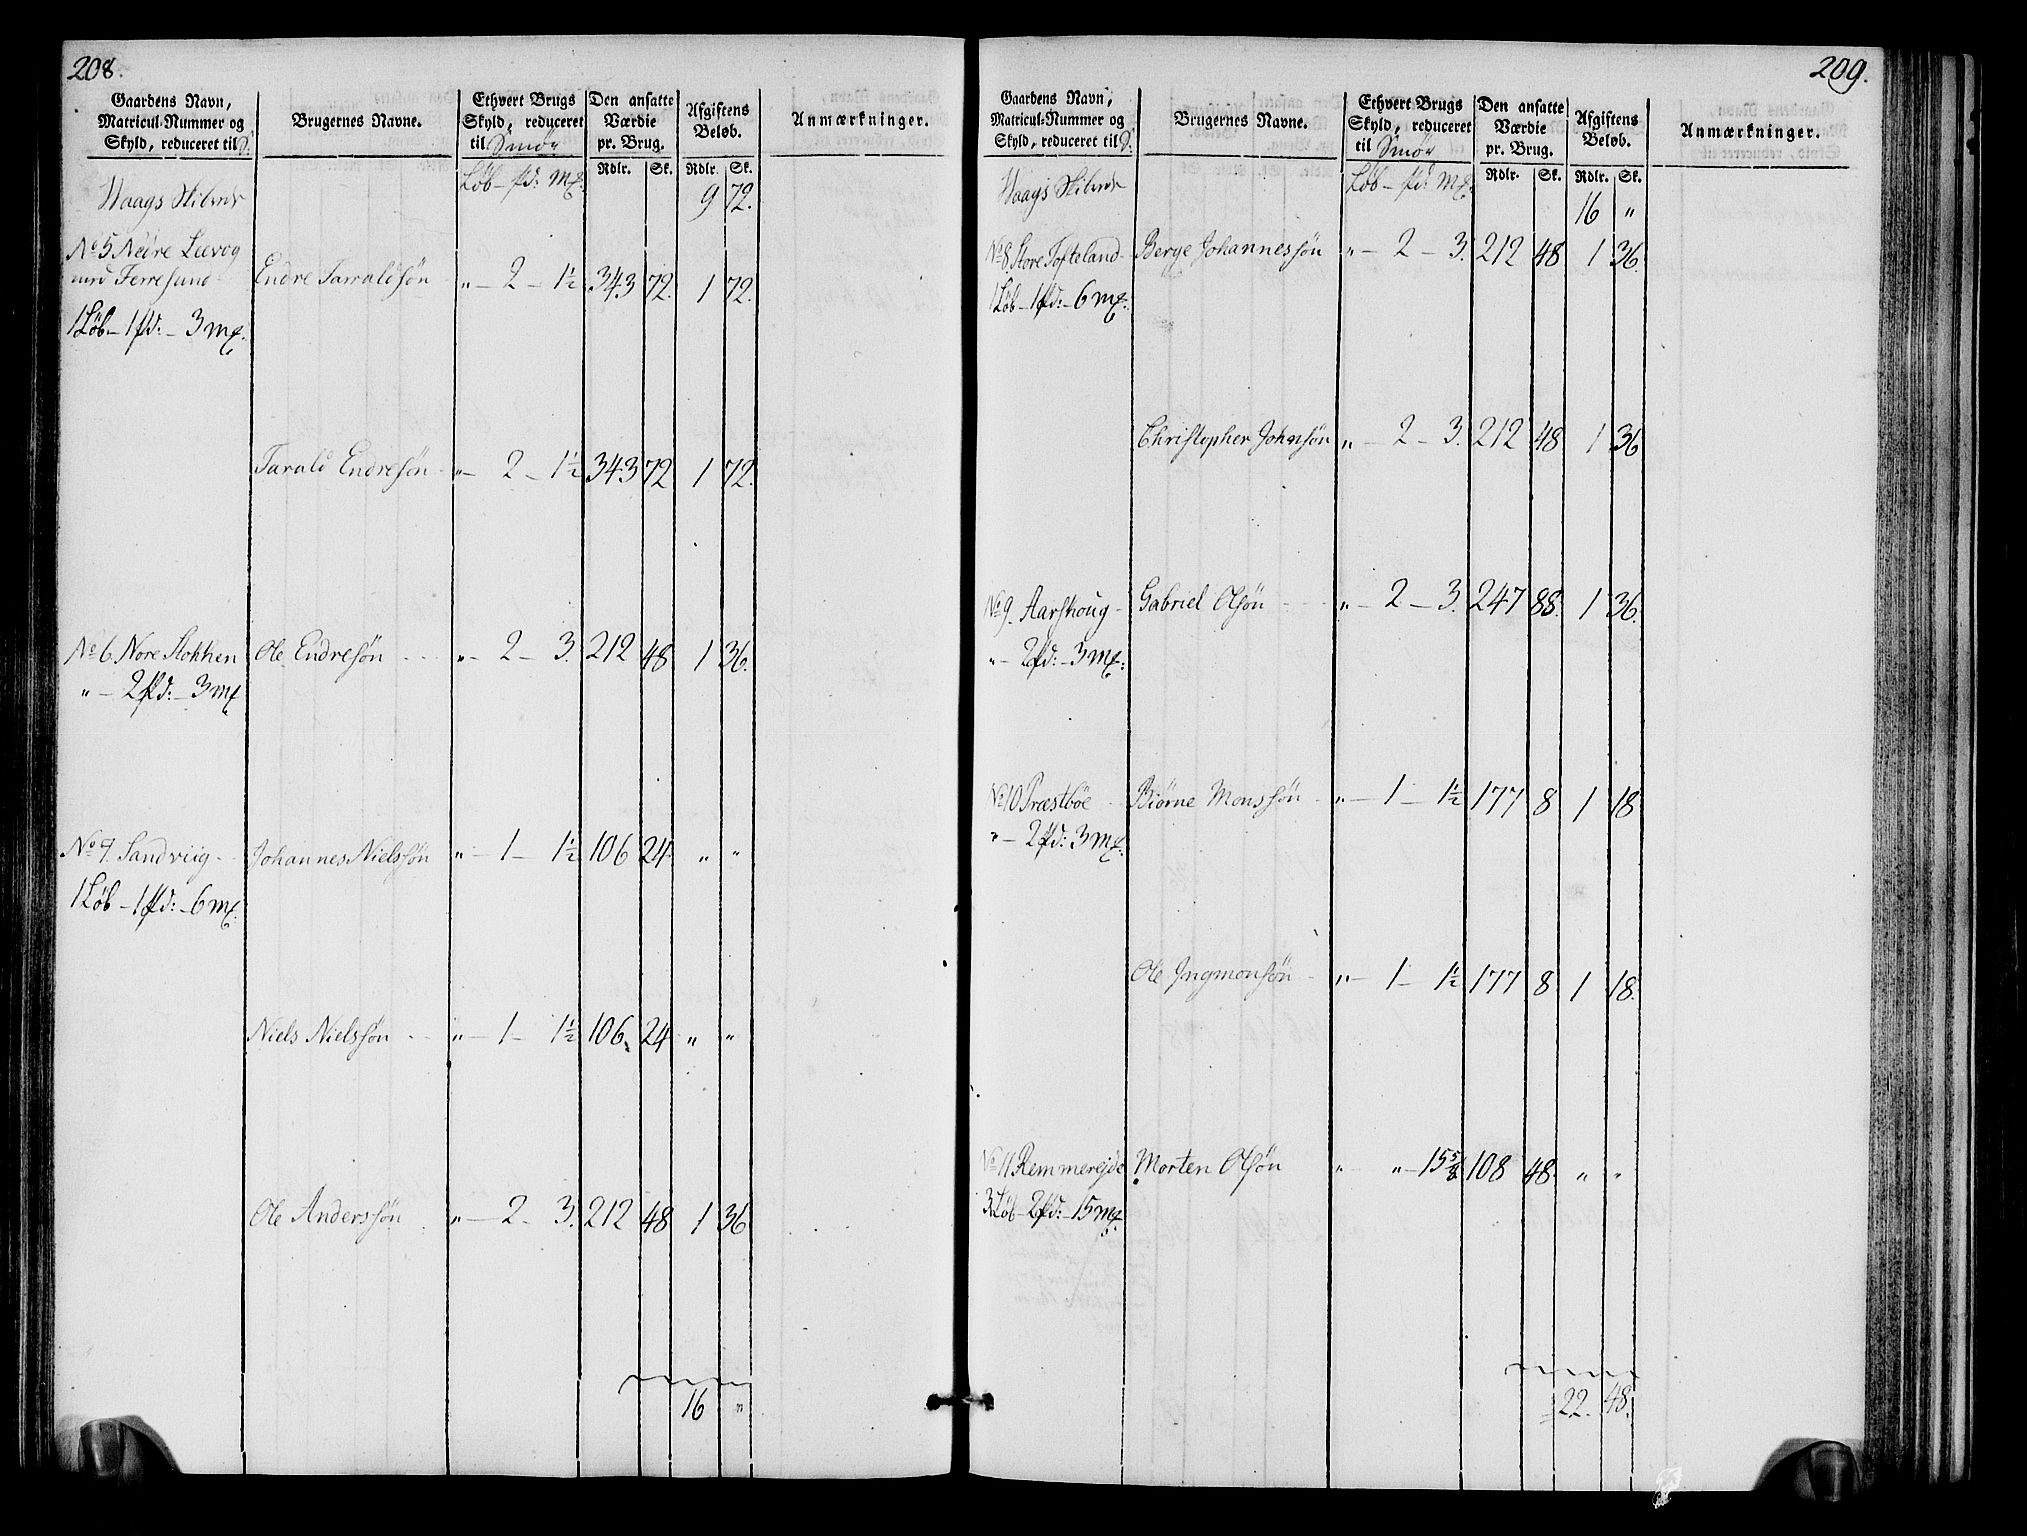 208.
Gaardens Navn, Matricul-Nummer og Skyld, reduceret til S.
Brugernes Navne.
Ethvert Brugs Skyld, reduceret til Smör
Den ansatte Værdie pr. Brug.
Afgiftens Beløb.
Anmærkninger.
Rdlr. Sk. Rdlr. Sk.
Løb - pd: - mk.
Waags Skibrede 9 72.
No 5. Nedre Leevog
med Ferresund Endre Tarraldsøn „ - 2 - 1½ 343 72. 1 72.
1 Løb - 1 pd: - 3 mk.
Tarald Endresøn - „ - 2 - 1½ 343 72 1 72.
No 6. Nore Stokken Ole Endresøn „ - 2 - 3. 212 48 1 36.
„ - 2 pd: - 3 mk
No 9. Sandviig - Johannes Nielssøn „ - 1 - 1½ 106 24 „ „
1 Løb - 1 pd: - 6 mk.
Niels Nielssøn „ - 1 - 1½ 106. 24 „ „
Ole Anderssøn „ - 2 - 3. 212 48 1 36
16 „
209.
Gaardens Navn, Matricul-Nummer og Skyld, reduceret til S.
Brugernes Navne.
Ethvert Brugs Skyld, reduceret til Smör
Den ansatte Værdie pr. Brug.
Afgiftens Beløb.
Anmærkninger.
Rdlr. Sk. Rdlr. Sk.
Løb - pd: mk.
Waags Skibrede 16 „
No 8. Store Tofteland - Berge Johannessøn „ - 2 - 3. 212 48 1 36.
1 Løb - 1 pd: - 6 mk.
Christopher Johnsøn „ - 2 - 3. 212 48 1 36
No 9. Aarskoug - Gabriel Olsøn „ - 2 - 3. 247 88. 1 36.
„ - 2 pd: - 3 mk.
No 10 Præstbøe Biørne Monssøn „ - 1 - 1½ 177 8 1 18
„ - 2 pd: 3 mk.
Ole Ingmonsøn „ - 1 - 1½ 177 8 1 18.
No 11 Remmerejde Morten Olsøn „ „ - 15⅝ 108 48. „ „
3 Løb - 2 pd: - 15 mk.
22. 48.